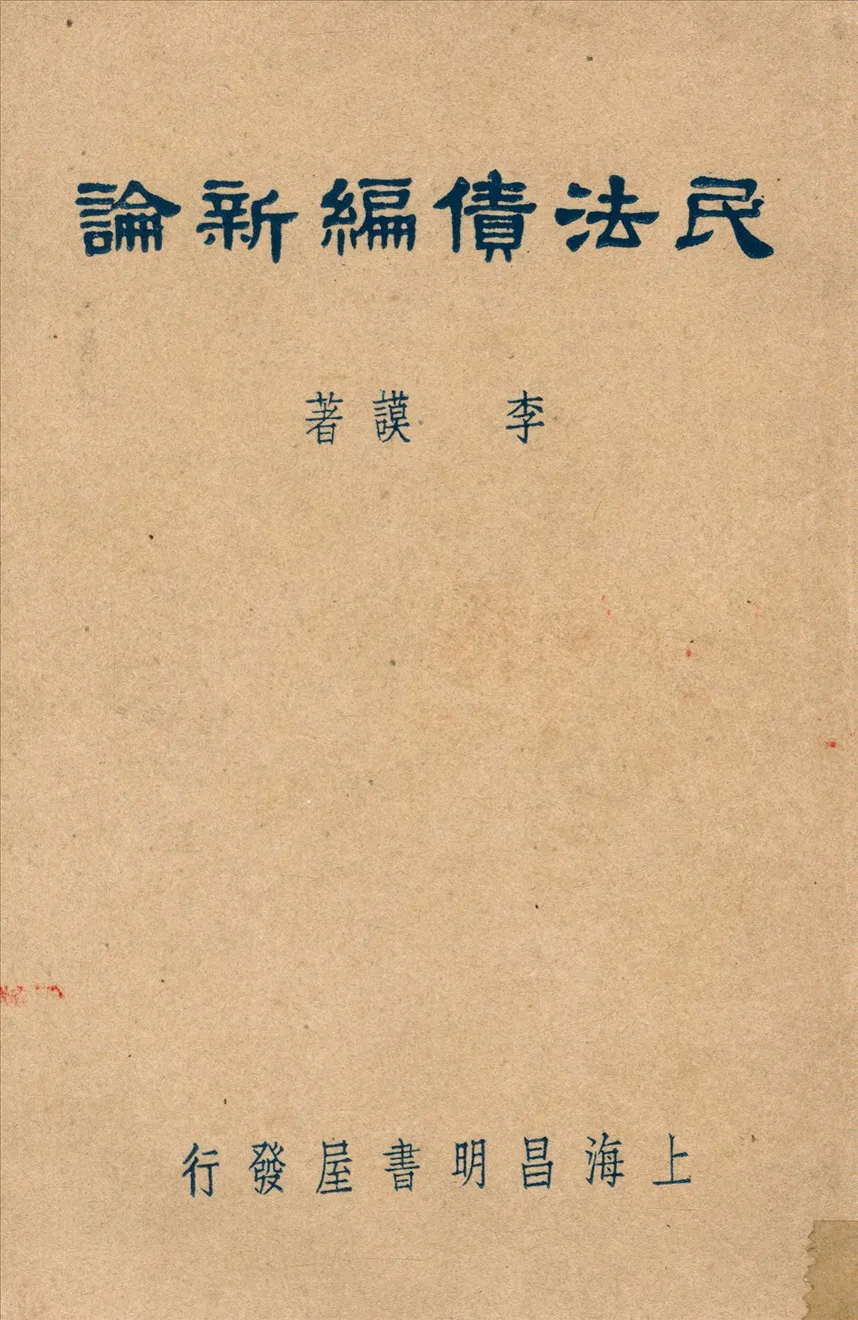 民法債編新論
李 謨 著
上海昌明書屋發行